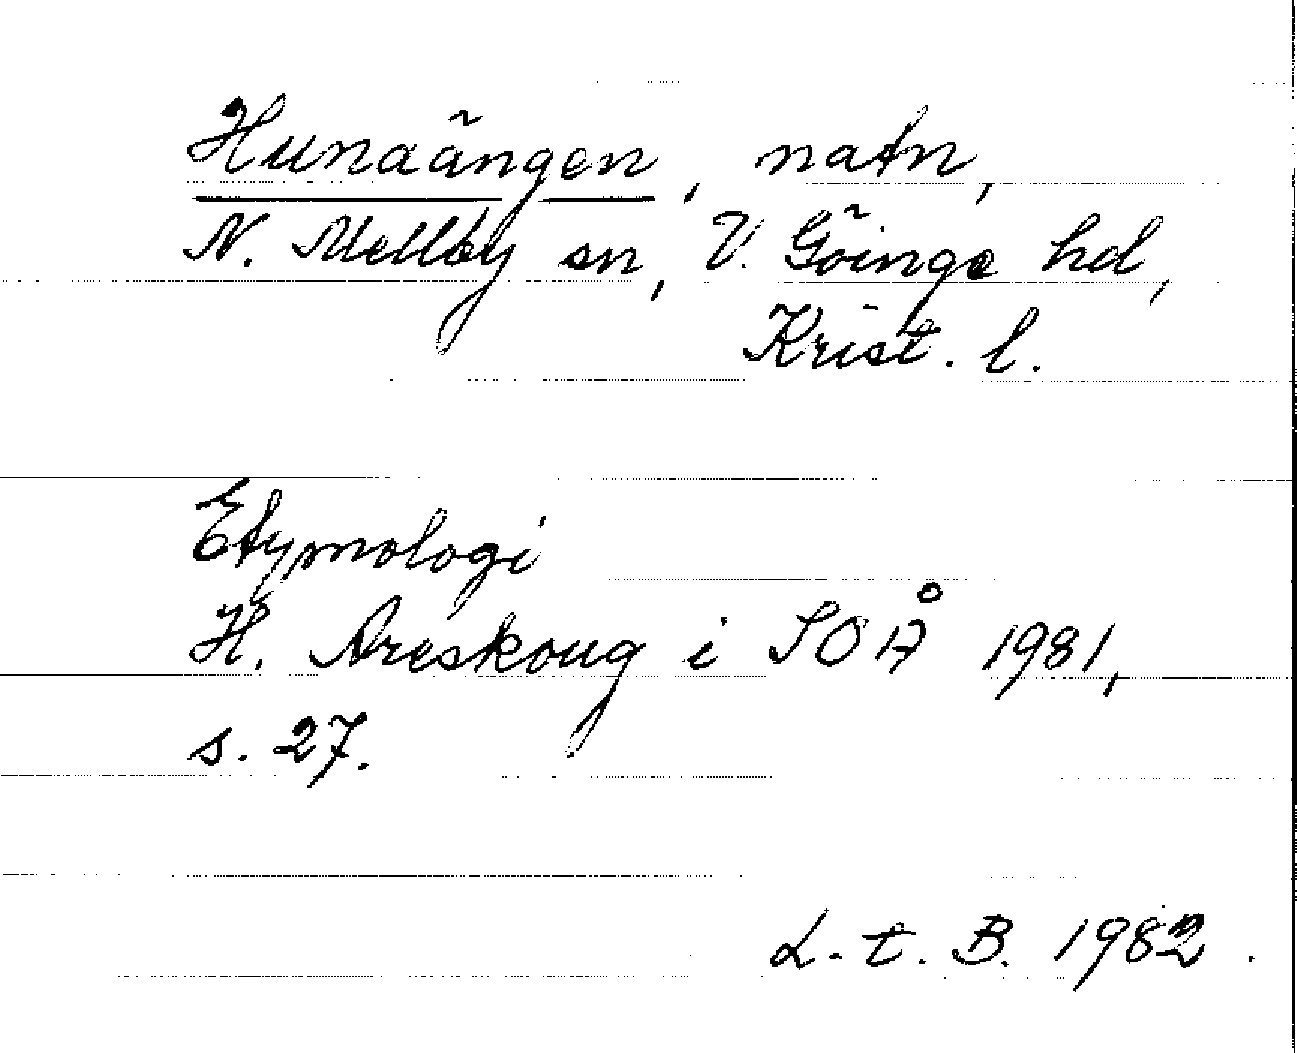 Hunaängen, natn,
N. Mellby sn, V. Göinge hd,
Krist. l.
Etymologi
H. Areskoug i SOÅ 1981,
s. 27.
L. t. B. 1982.